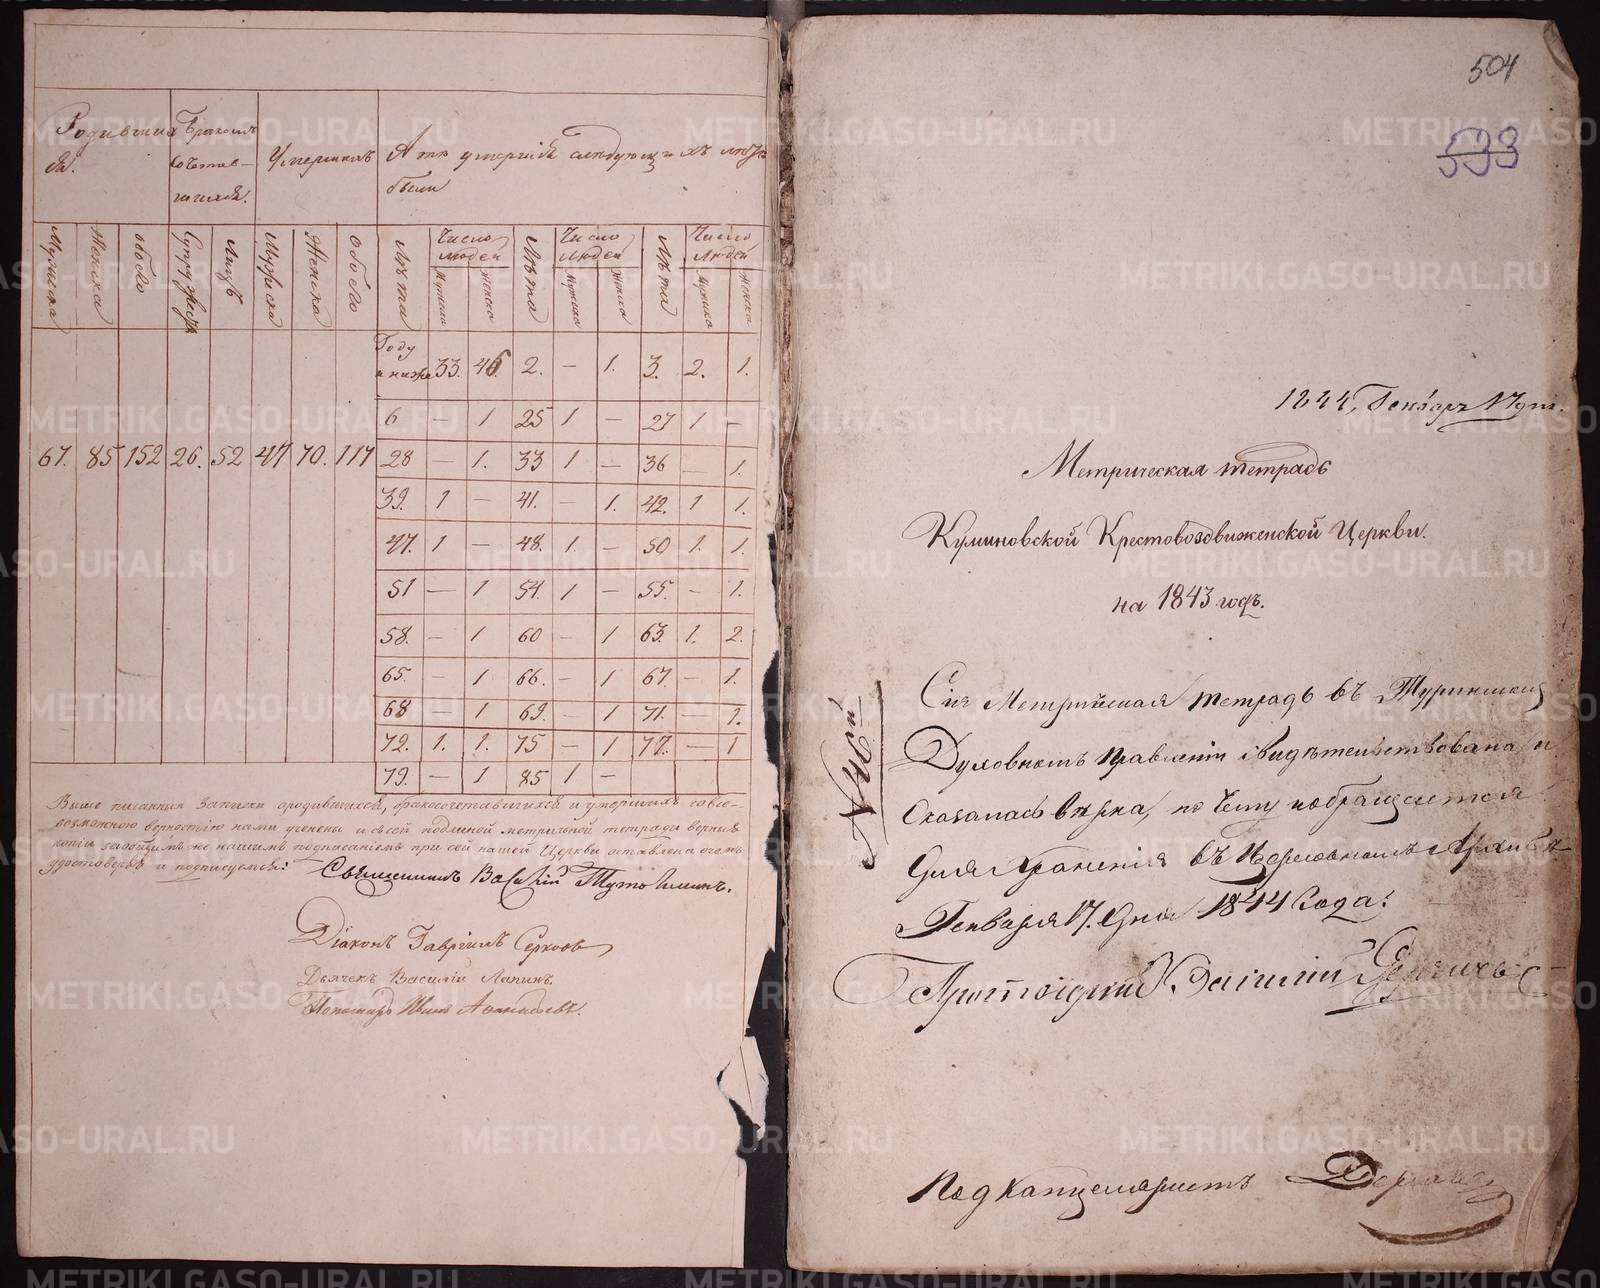 Родивших
ся.
Бракомъ
сочетав-
шихся.
Умершихъ
А тѣ умершіе слѣдующихъ лѣтъ
были
Мужска
Женска
обоего
Супружествъ
Лицъ
Мужска
Женска
обоего
Лѣта
Число
людей
Лѣта
Число
людей
Лѣта
Число
людей
мужска
женска
мужска
женска
мужска
женска
Году
и ниже 33. 46. 2. — 1. 3. 2. 1.
6 — 1 25 1 — 27 1 —
67. 85 152 26. 52 47 70. 117 28 — 1. 33 1 — 36 — 1.
39. 1 — 41. — 1. 42. 1 1.
47. 1 — 48. 1. — 50 1. 1.
51 — 1 54 1 — 55. — 1.
58. — 1 60 — 1 63. 1. 2.
65. — 1 66. — 1 67. — 1.
68 — 1 69. — 1 71. — 1.
72. 1. 1. 75 — 1 77. — 1
79. — 1 85. 1 —
Выше писанныя записки о родившихся, бракосочетавшихся и умершихъ со все-
возможною верностію нами учинены и съ сей подлиной метричной тетради верныя
копіи за общимъ же нашимъ подписаніемъ при сей нашей Церкви оставлена в чемъ
удостоверяя и подписуемся:
Священникъ Василій Тутолминъ.
Діаконъ Гавріилъ Серков
Дьячекъ Василій Лапинъ.
Пономарь Иванъ Аѳанасьевъ.
504
533
1844, Генваря 17 дня.
Метрическая тетрадь
Куминовской Крестовоздвиженской Церкви.
на 1843 годъ.
Сія Метрическая тетрадь въ Туринскомъ
Духовномъ правленіи свидѣтельствована и
оказалась верна, по чему и обращается
для храненія въ Церковномъ Архивѣ
Генваря 17. дня 1844 года:
Протоіерей Василій
Подканцеляристъ
METRIKI.GASO-URAL.RU